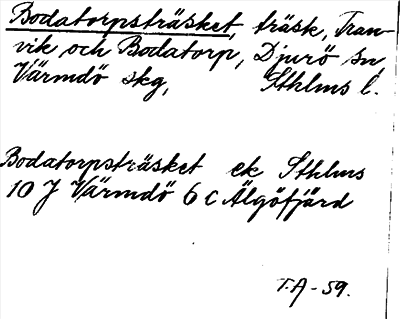 Bodatorpsträsket, träsk, Tran-
vik och Bodatorp, Djurö sn,
Värmdö skg, Sthlms l.
Bodatorpsträsket ek Sthlms
10 J Värmdö 6 c Älgöfjärd
T.A-59.